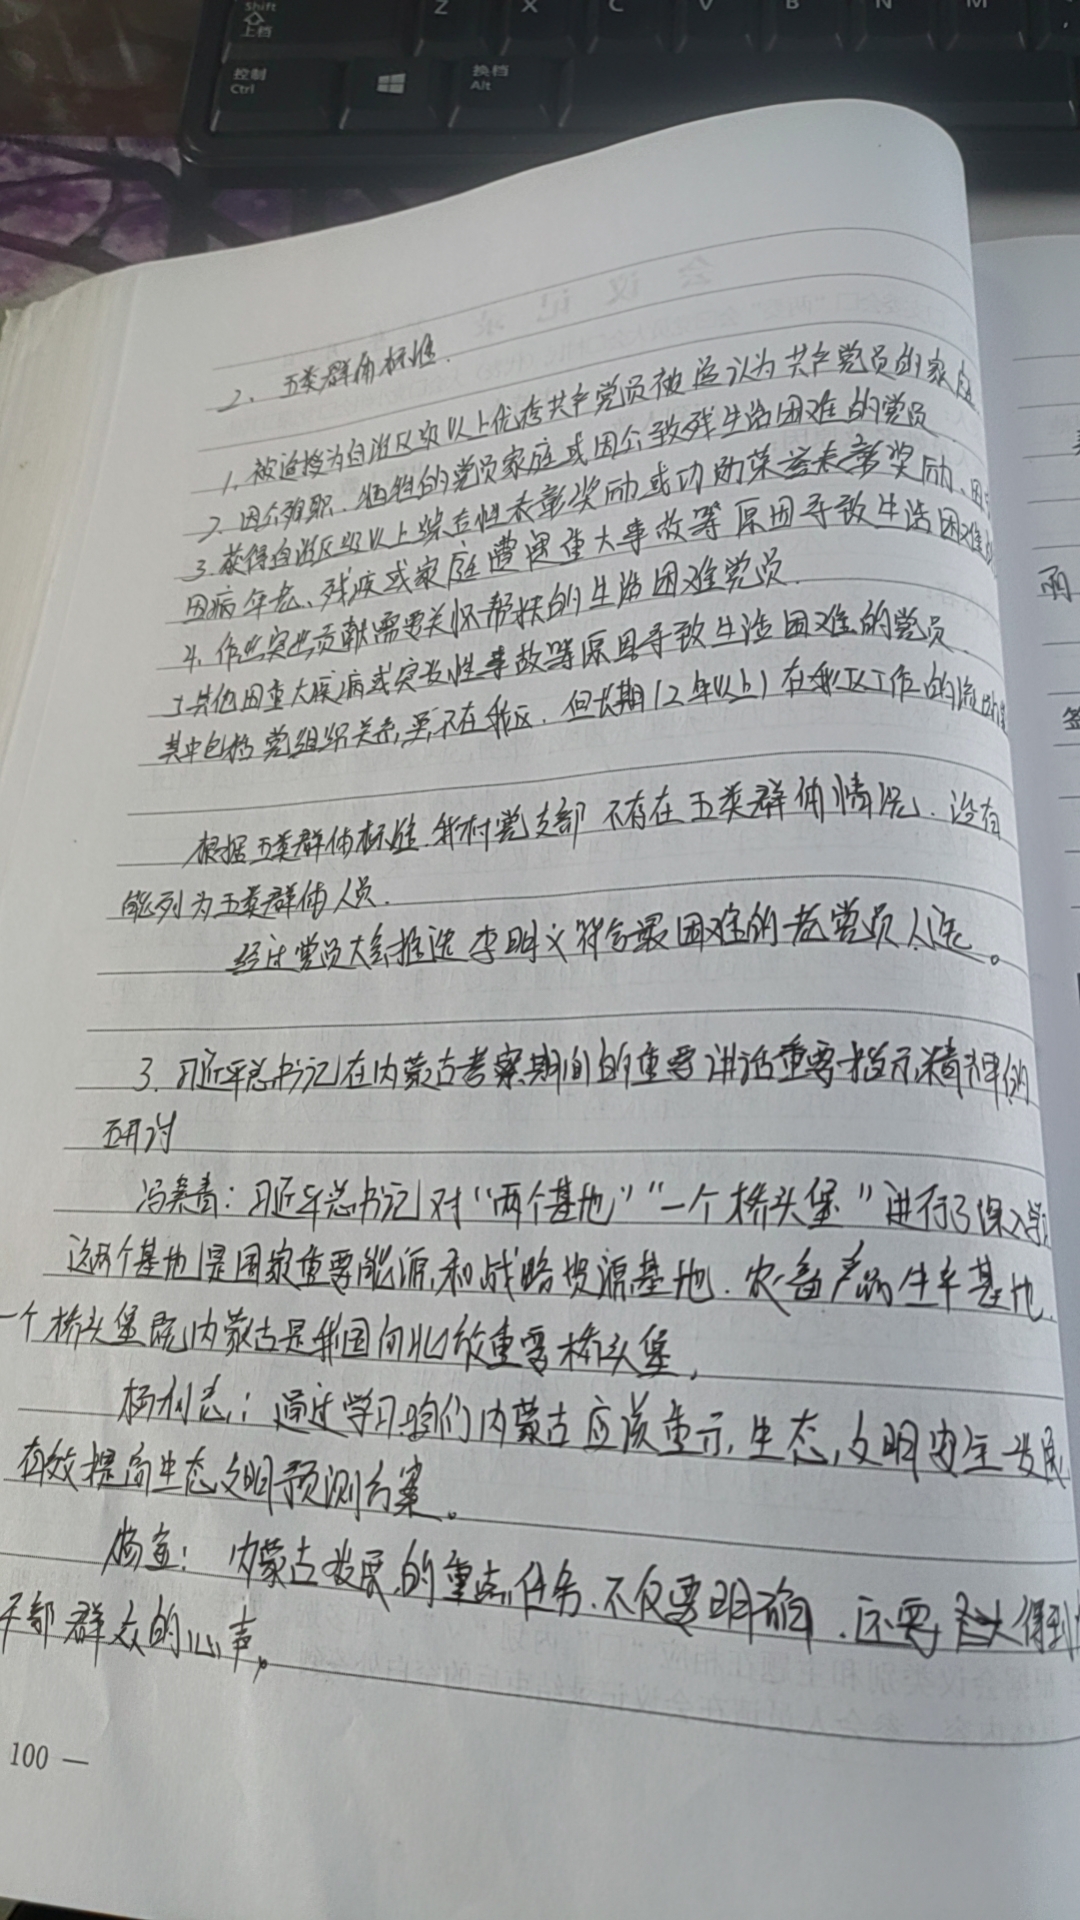 Shift
上档
Z X C V B N M
控制
Ctrl
换档
Alt
会议记录
2、五类群体标准.
1、被追授为自治区级以上优秀共产党员被追认为共产党员的家庭
2、因公殉职、牺牲的党员家庭或因公致残生活困难的党员
3、获得自治区级以上综合性表彰奖励或功勋荣誉表彰奖励、因
因病年老、残疾或家庭遭遇重大事故等原因导致生活困难
4、作出突出贡献需要关怀帮扶的生活困难党员.
5其他因重大疾病或突发性事故等原因导致生活困难的党员
其中包括党组织关系虽不在我区.但长期(2年以上)在我区工作的流动
根据五类群体标准.我村党支部不存在五类群体情况.没有
能列为五类群体人员.
经过党员大会推选李明义符合最困难的老党员人选。
3.习近平总书记在内蒙古考察期间的重要讲话重要指示精神的
研讨
冯美青:习近平总书记对“两个基地”“一个桥头堡”进行了深入
这两个基地是国家重要能源和战略资源基地.农畜产品生产基地
一个桥头堡既内蒙古是我国向北放重要桥头堡,
杨利志:通过学习咱们内蒙古应该重示,生态,文明安全发展
有效提高生态文明预测方案。
杨宣:内蒙古发展的重点任务.不仅要明确.还要 得到
干部群众的心声。
100 —